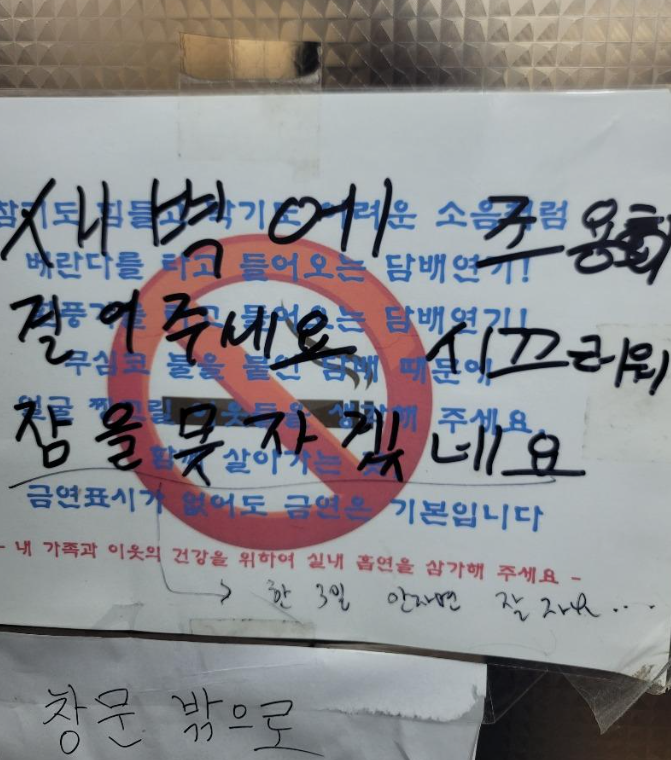 새벽에
주세요 시끄러워
잠을 못자겠네요
소음처럼
베란다를 타고 들어오는 담배연기!
타고 들어오는 담배연기!
무심코 불을 붙인 담배 때문에
이웃들을 생각해 주세요.
함께 살아가는
금연표시가 없어도 금연은 기본입니다
- 내 가족과 이웃의 건강을 위하여 실내 흡연을 삼가해 주세요 -
한 3일 안자면 잘 자요....
창문 밖으로